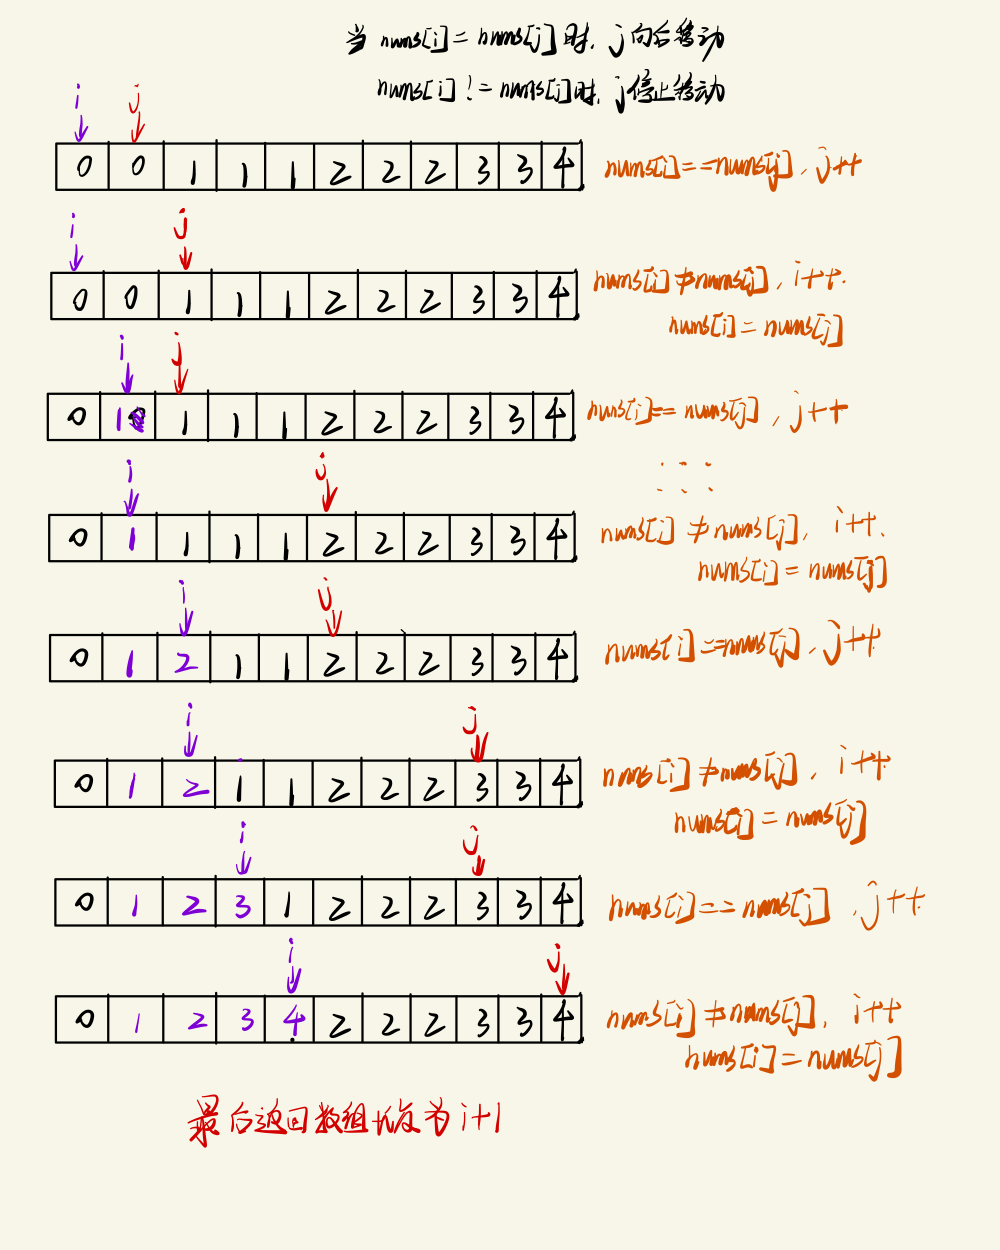 当 nums[i] = nums[j] 时, j 向后移动
nums[i] != nums[j] 时, j 停止移动
i j
0 0 1 1 1 2 2 2 3 3 4 nums[i]==nums[j], j++
i j
0 0 1 1 1 2 2 2 3 3 4 nums[i]≠nums[j], i++.
nums[i] = nums[j]
i j
0 1 1 1 1 2 2 2 3 3 4 nums[i]== nums[j], j++
......
i j
0 1 1 1 1 2 2 2 3 3 4 nums[i] ≠ nums[j], i++.
nums[i] = nums[j]
i j
0 1 2 1 1 2 2 2 3 3 4 nums[i]==nums[j], j++
i j
0 1 2 1 1 2 2 2 3 3 4 nums[i]≠nums[j], i++
nums[i] = nums[j]
i j
0 1 2 3 1 2 2 2 3 3 4 nums[i]== nums[j], j++
i j
0 1 2 3 4 2 2 2 3 3 4 nums[i]≠nums[j], i++
nums[i]=nums[j]
最后返回数组长度为 i+1